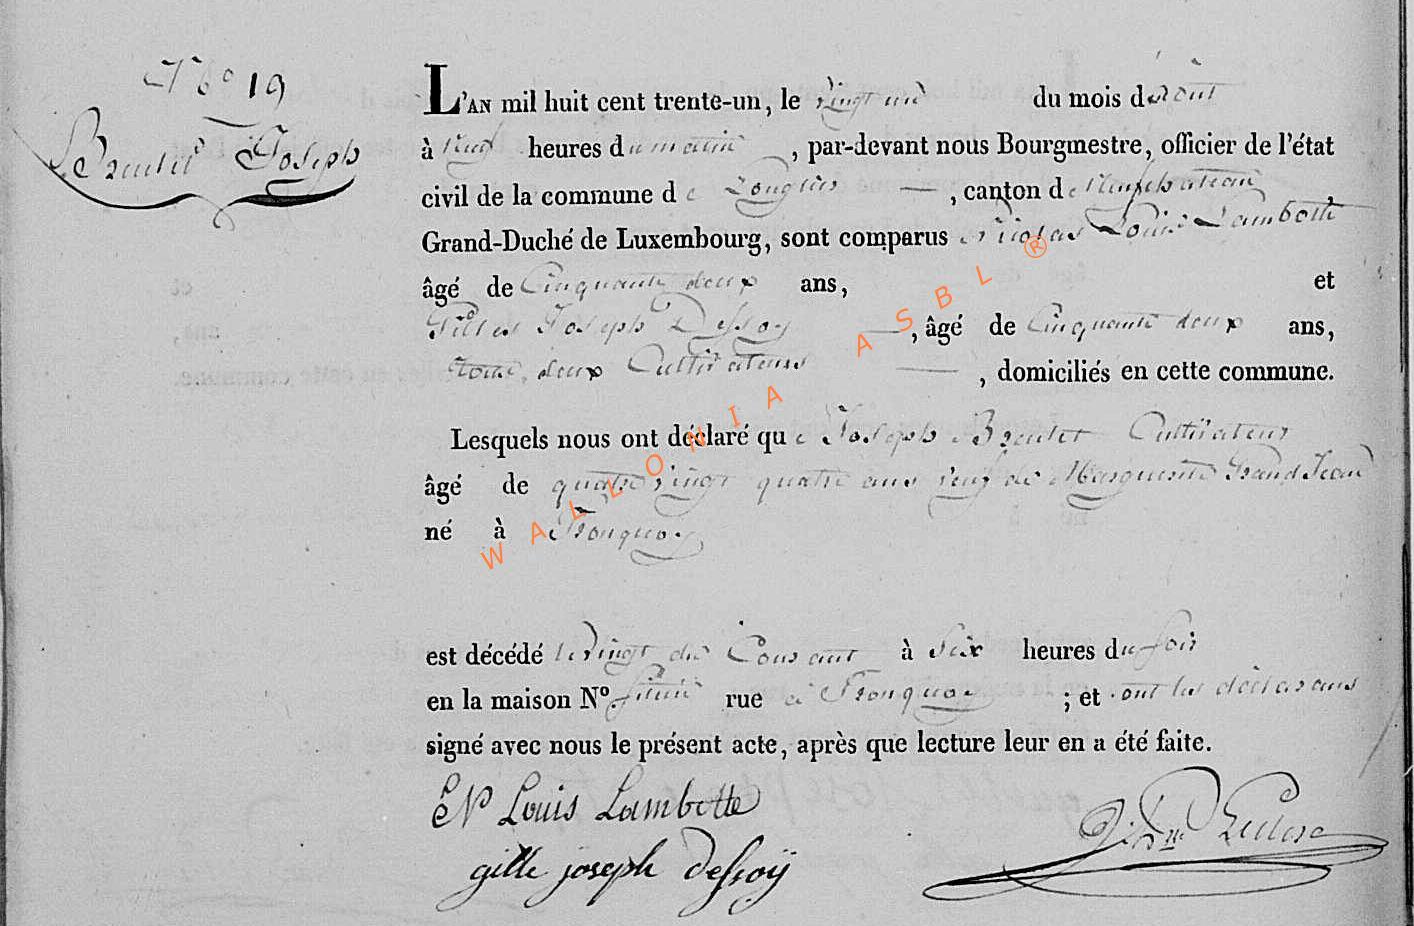 N° 19
Breulet Joseph
L'AN mil huit cent trente-un, le vingt un du mois d'aout
à neuf heures du matin, par-devant nous Bourgmestre, officier de l'état
civil de la commune de Longlier, canton de Neufchateau
Grand-Duché de Luxembourg, sont comparus Nicolas Louis Lambotte
âgé de Cinquante deux ans, et
Gilles Joseph Dessoy, âgé de Cinquante deux ans,
tous deux Cultivateurs, domiciliés en cette commune.
Lesquels nous ont déclaré que Joseph Breulet Cultivateur
âgé de quatre vingt quatre ans veuf de Marguerite Grand Jean
né à Tronquoy
est décédé le vingt du Courant à Six heures du soir
en la maison N° située rue à Tronquoy; et ont les déclarans
signé avec nous le présent acte, après que lecture leur en a été faite.
N Louis Lambotte
gille joseph dessoÿ
WALLONIA ASBL ®